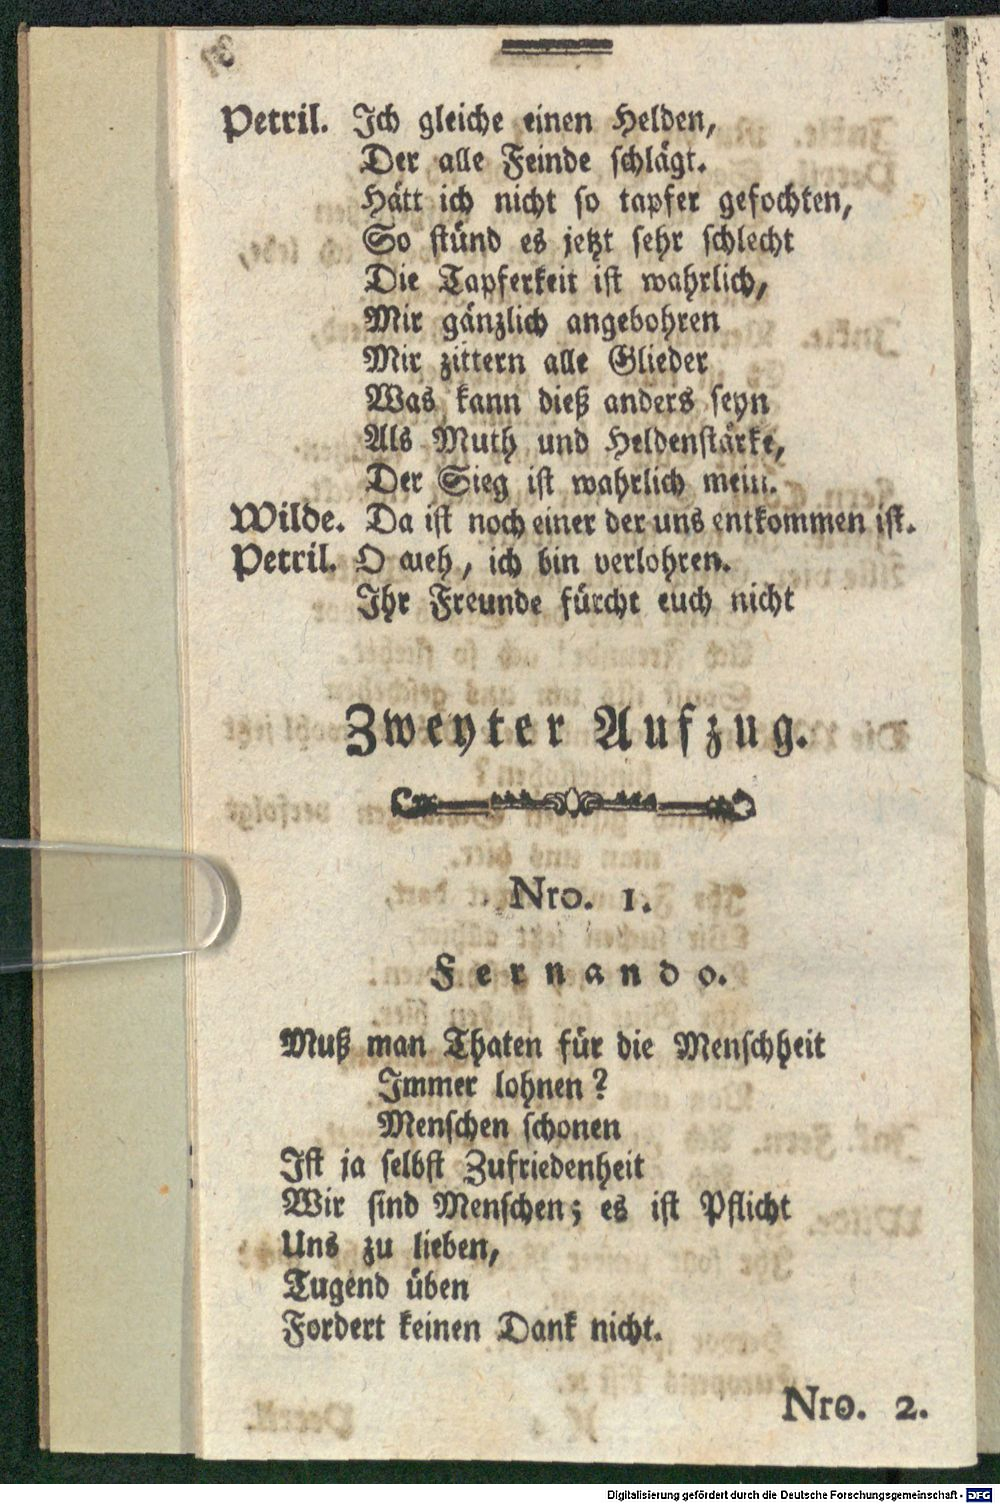 Petril. Ich gleiche einen Helden,
Der alle Feinde schlägt.
Hätt ich nicht so tapfer gefochten,
So stünd es jetzt sehr schlecht
Die Tapferkeit ist wahrlich,
Mir gänzlich angebohren
Mir zittern alle Glieder
Was kann dieß anders seyn
Als Muth und Heldenstärke,
Der Sieg ist wahrlich mein.
Wilde. Da ist noch einer der uns entkommen ist.
Petril. O weh, ich bin verlohren.
Ihr Freunde fürcht euch nicht
Zweyter Aufzug.
Nro. 1.
Fernando.
Muß man Thaten für die Menschheit
Immer lohnen?
Menschen schonen
Ist ja selbst Zufriedenheit
Wir sind Menschen; es ist Pflicht
Uns zu lieben,
Tugend üben
Fordert keinen Dank nicht.
Nro. 2.
Digitalisierung gefördert durch die Deutsche Forschungsgemeinschaft - DFG